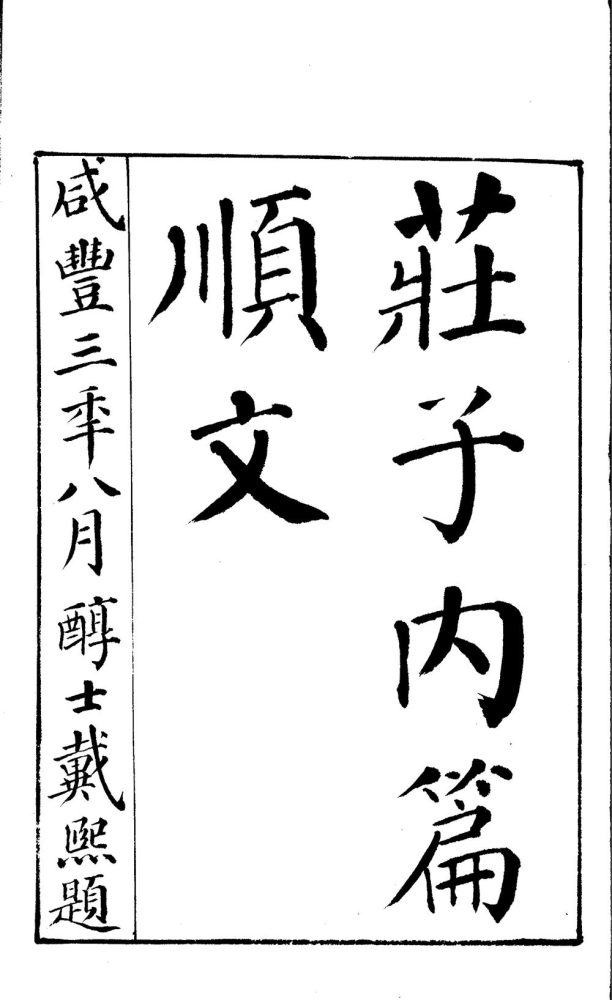 莊子內篇
順文
咸豐三秊八月醇士戴熙題